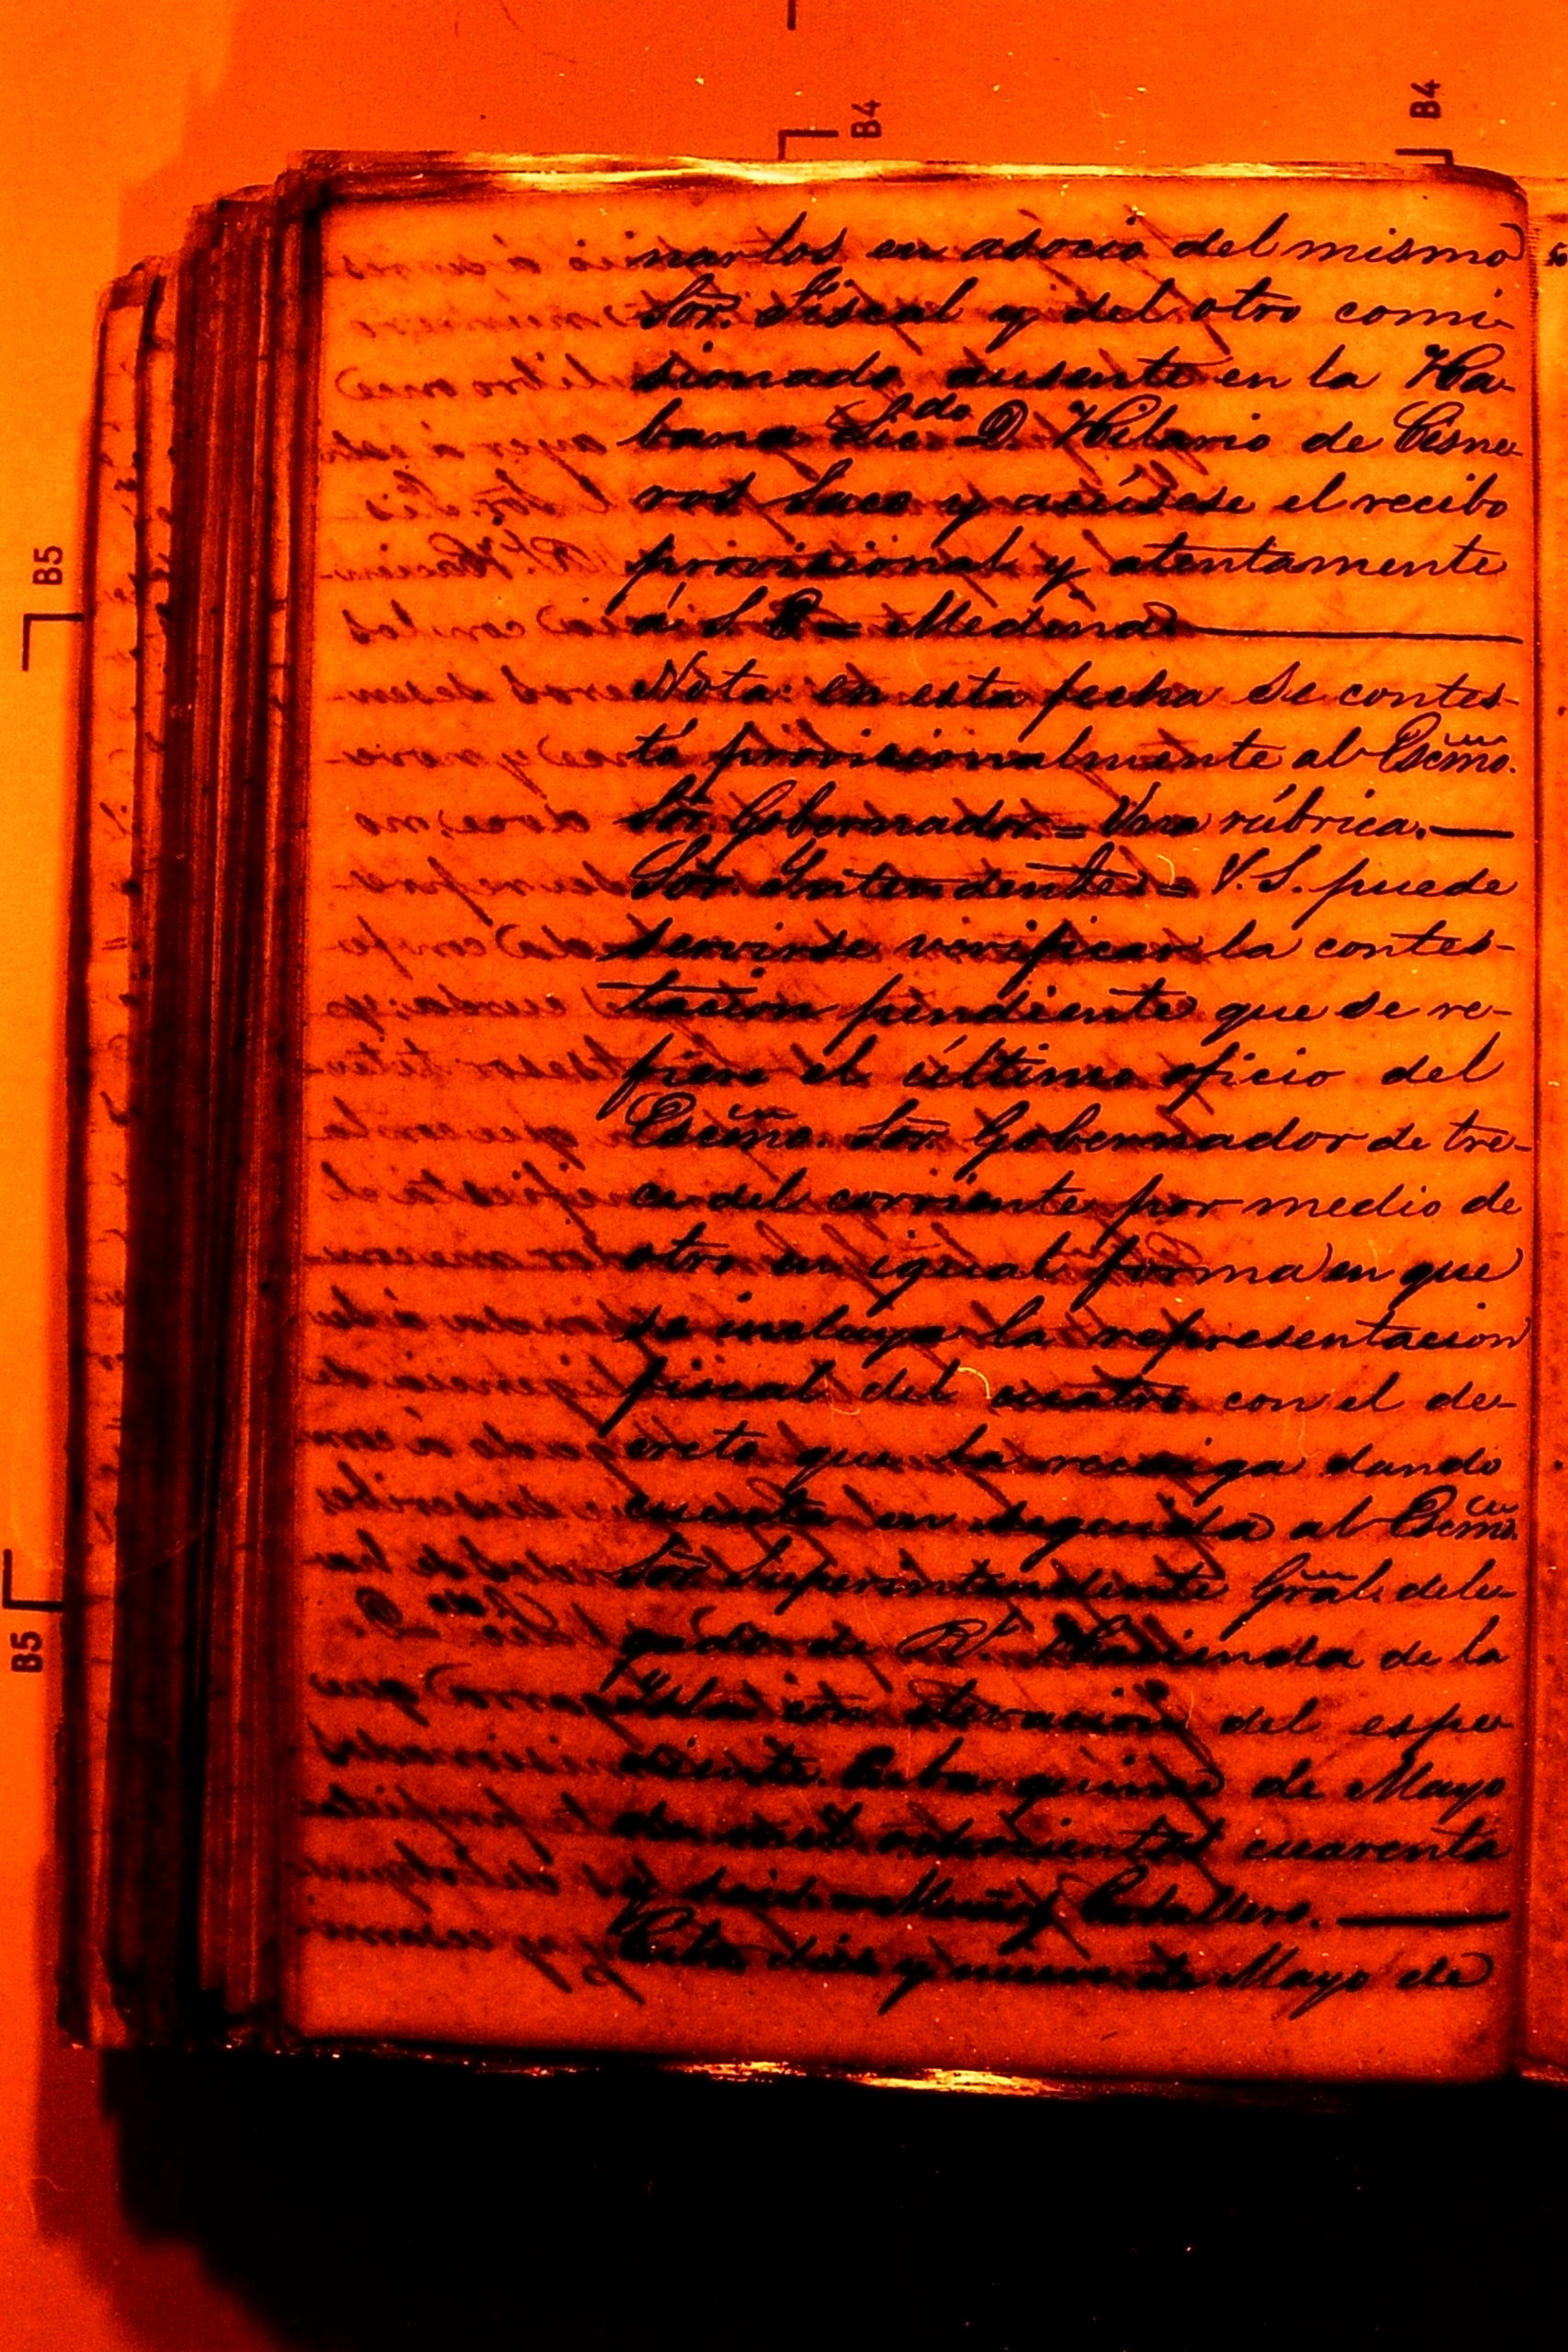 B4
B4
B5
B5
narlos en asocio del mismo
Sor. Fiscal y del otro comi-
sionado ausente en la Ha-
bana Licdo D. Hilario de Cisne-
ros Saco y acúsese el recibo
provisional y atentamente
á S. E. = Medina
Nota: en esta fecha se contes-
tó provisionalmente al Escmo.
Sor. Gobernador = Una rúbrica.
Sor. Yntendente = V.S. puede
servirse verificar la contes-
tacion pendiente que se re-
fiere el último oficio del
Escmo. Sor. Gobernador de tre-
ce del corriente por medio de
otro en igual forma en que
se incluya la representacion
fiscal del cuatro con el de-
creto que la recaiga dando
cuenta en seguida al Escmo.
Sor. Superintendente Gral. dele-
gado de Rl. Hacienda de la
Ysla con del espe-
diente. Cuba quince de Mayo
de mil ochocientos cuarenta
y seis. = Muñoz Caballero.
Cuba diez y nueve de Mayo de